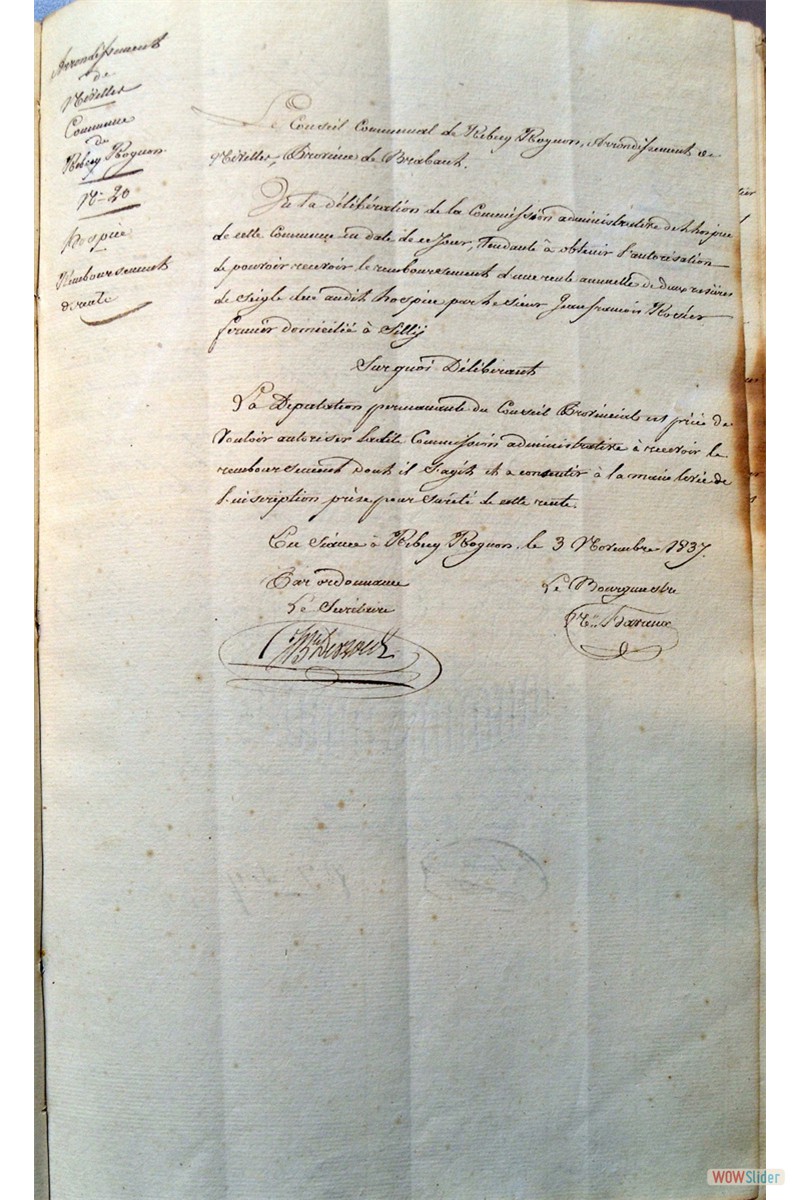 Arrondissement
de
Nivelles
Commune
de
Rebecq Rognon
N° 20
hospice
Remboursement
de rente
Le Conseil Communal de Rebecq Rognon, Arrondissement de
Nivelles, Province de Brabant.
Vu la délibération de la Commission administrative de l'hospice
de cette Commune en date de ce jour, tendante à obtenir l'autorisation
de pouvoir recevoir le remboursement d'une rente annuelle de deux rasières
de seigle due audit hospice par le Sieur Jean francois Rosier
fermier domicilié à Silly
Sur quoi Délibérant
La Députation permanante du Conseil Provincial est priée de
Vouloir autoriser ladite Commission administrative à recevoir le
remboursement dont il s'agit et a consentir à la main levée de
l'inscription prise pour sureté de cette rente.
En séance à Rebecq Rognon, le 3 Novembre 1837.
Par ordonnance
Le Bourgmestre
Le Secrétaire
WOWSlider